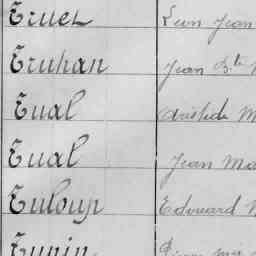 Truel Léon Jean
Truhan Jean Bte
Tual Aristide M
Tual Jean Ma
Tuloup Edouard
Tunin